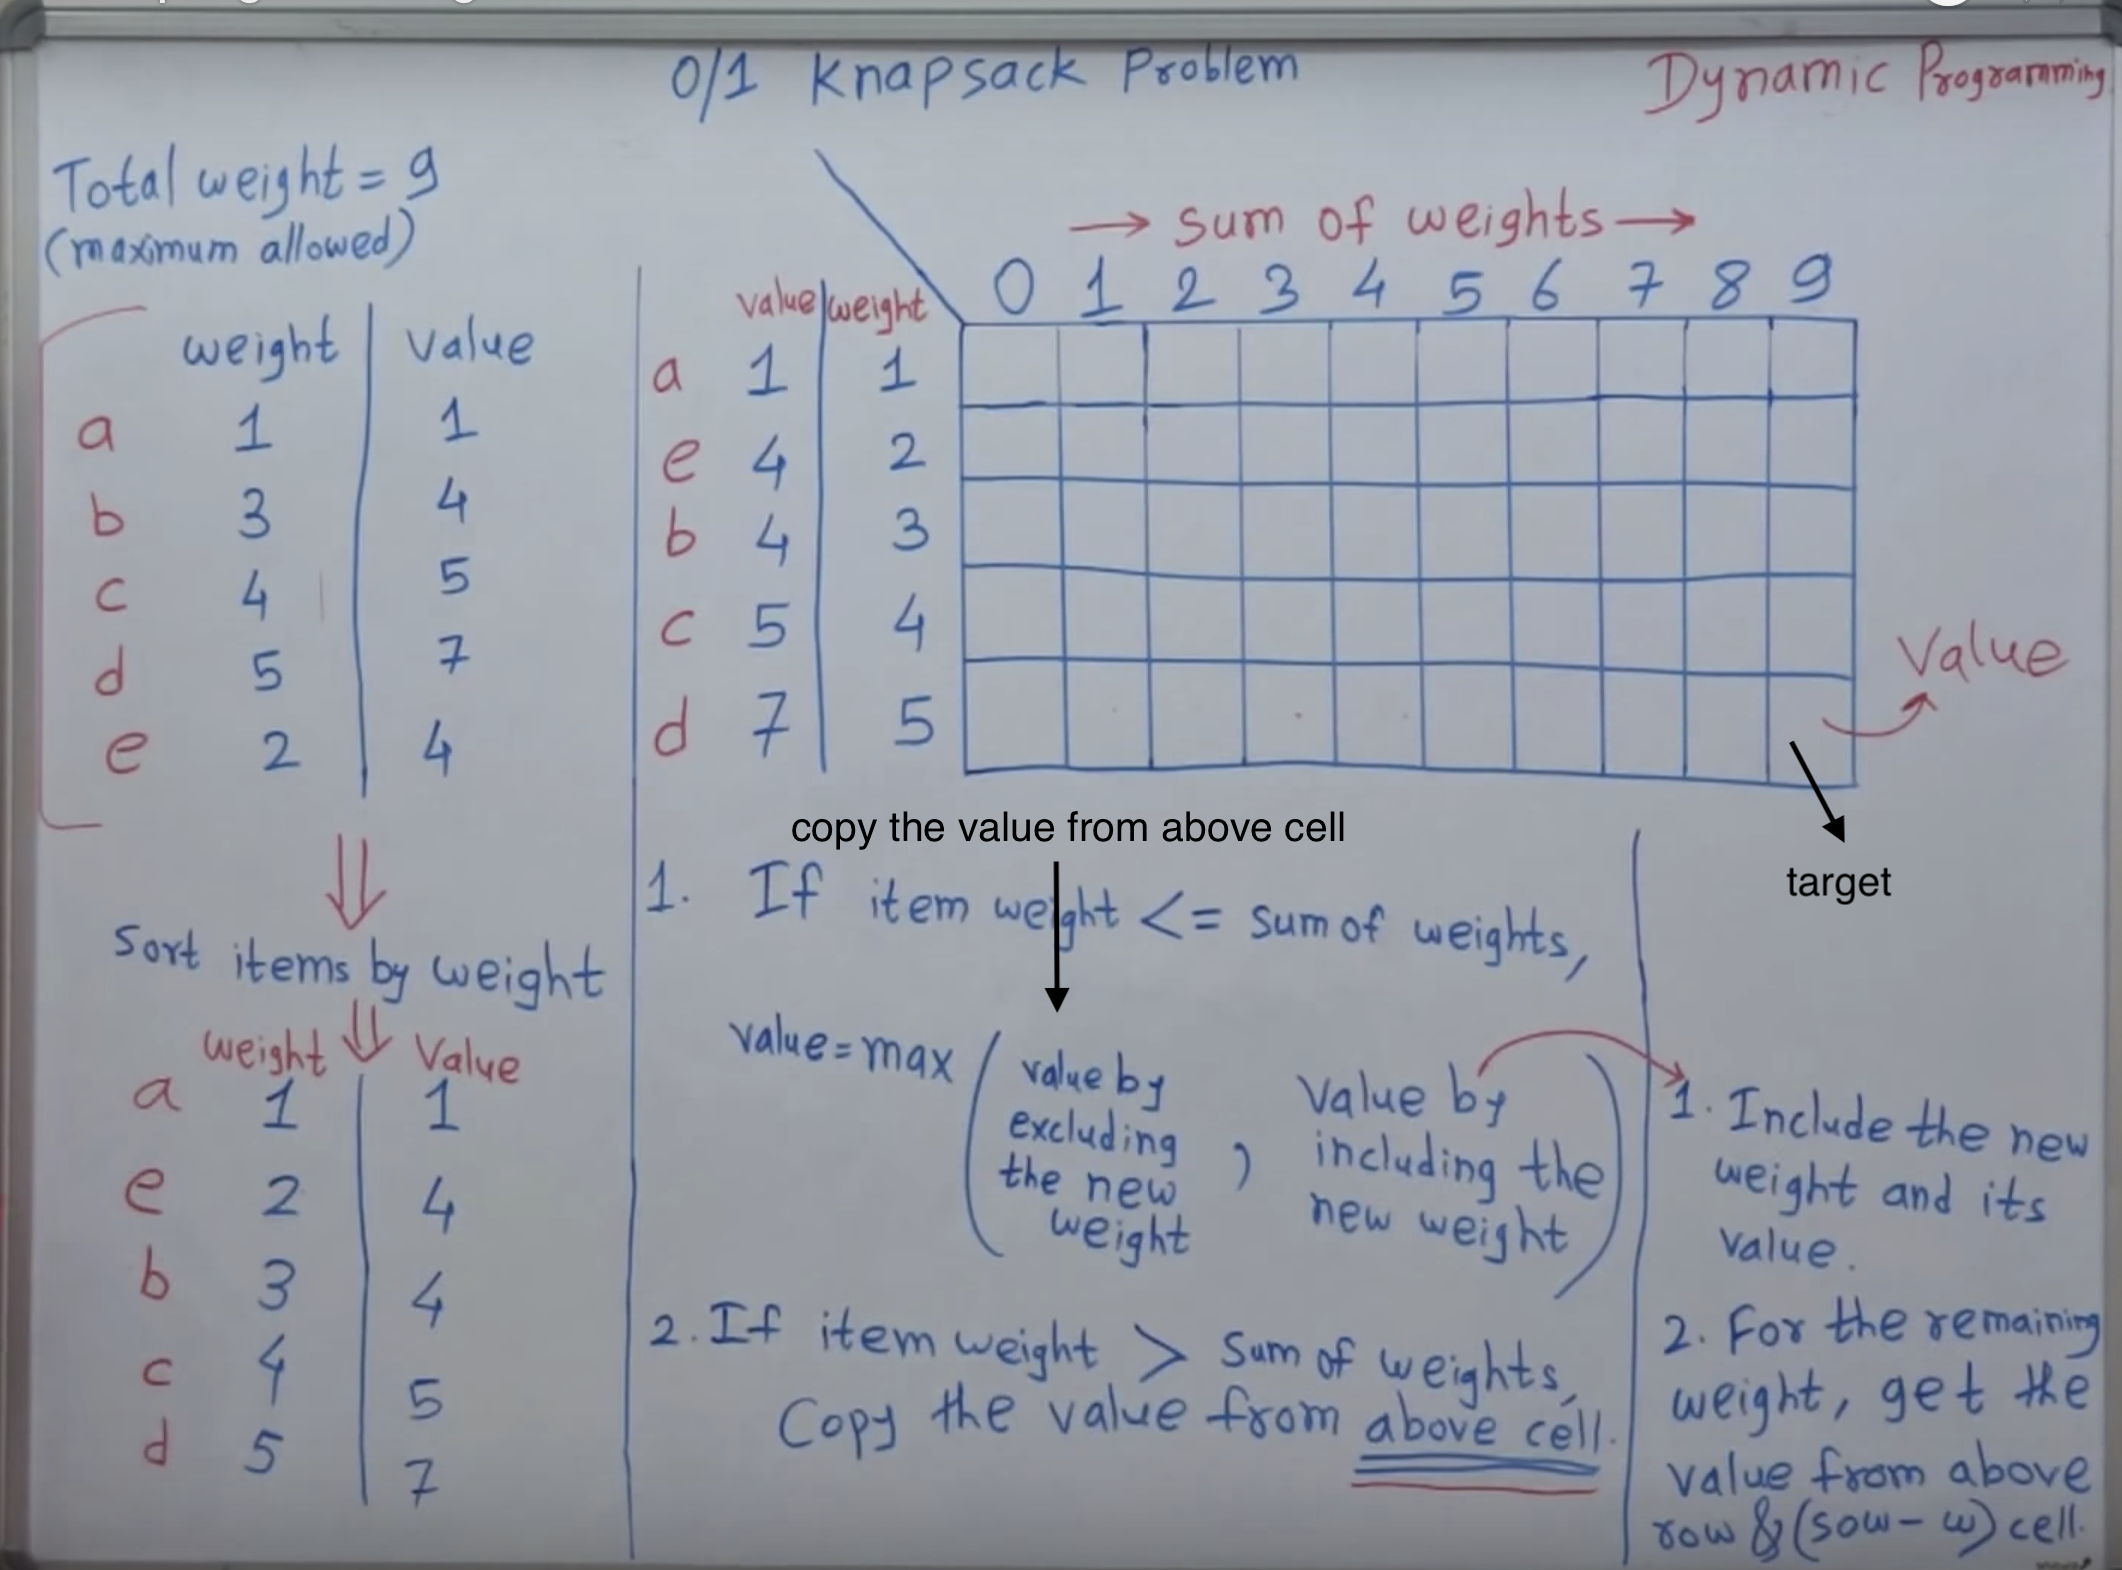 0/1 Knapsack Problem
Dynamic Programming
Total weight = 9
(maximum allowed)
weight value
a 1 1
b 3 4
c 4 5
d 5 7
e 2 4
Sort items by weight
weight Value
a 1 1
e 2 4
b 3 4
c 4 5
d 5 7
→ sum of weights →
value weight 0 1 2 3 4 5 6 7 8 9
a 1 1
e 4 2
b 4 3
c 5 4
d 7 5
Value
target
copy the value from above cell
1. If item weight <= sum of weights,
value = max ( value by
excluding
the new
weight
,
Value by
including the
new weight )
2. If item weight > sum of weights,
Copy the value from above cell.
1. Include the new
weight and its
value.
2. For the remaining
weight, get the
value from above
row & (sow - w) cell.